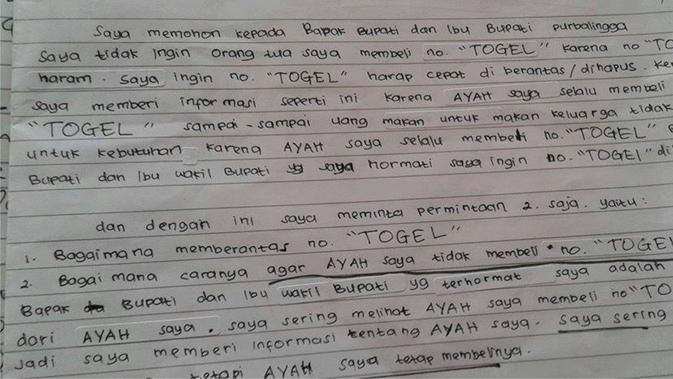 Saya memohon kepada Bapak Bupati dan Ibu Bupati purbalingga
Saya tidak ingin orang tua saya membeli no. "TOGEL" karena no "TO
haram. saya ingin no. "TOGEL" harap cepat di berantas/dihapus. Ke
saya memberi informasi seperti ini karena AYAH saya selalu membeli
"TOGEL" sampai-sampai uang makan untuk makan keluarga tidak
untuk kebutuhan karena AYAH saya selalu membeli no. "TOGEL"
Bupati dan Ibu wakil Bupati yg saya hormati saya ingin no. "TOGEl" di
dan dengan ini saya meminta permintaan 2. saja. yaitu:
1. Bagaimana memberantas no. "TOGEL"
2. Bagai mana caranya agar AYAH saya tidak membeli no. "TOGE
Bapak Bupati dan Ibu wakil Bupati yg terhormat saya adalah
dari AYAH saya. saya sering melihat AYAH saya membeli no "TO
Jadi saya memberi informasi tentang AYAH saya. saya sering
tetapi AYAH saya tetap membelinya.